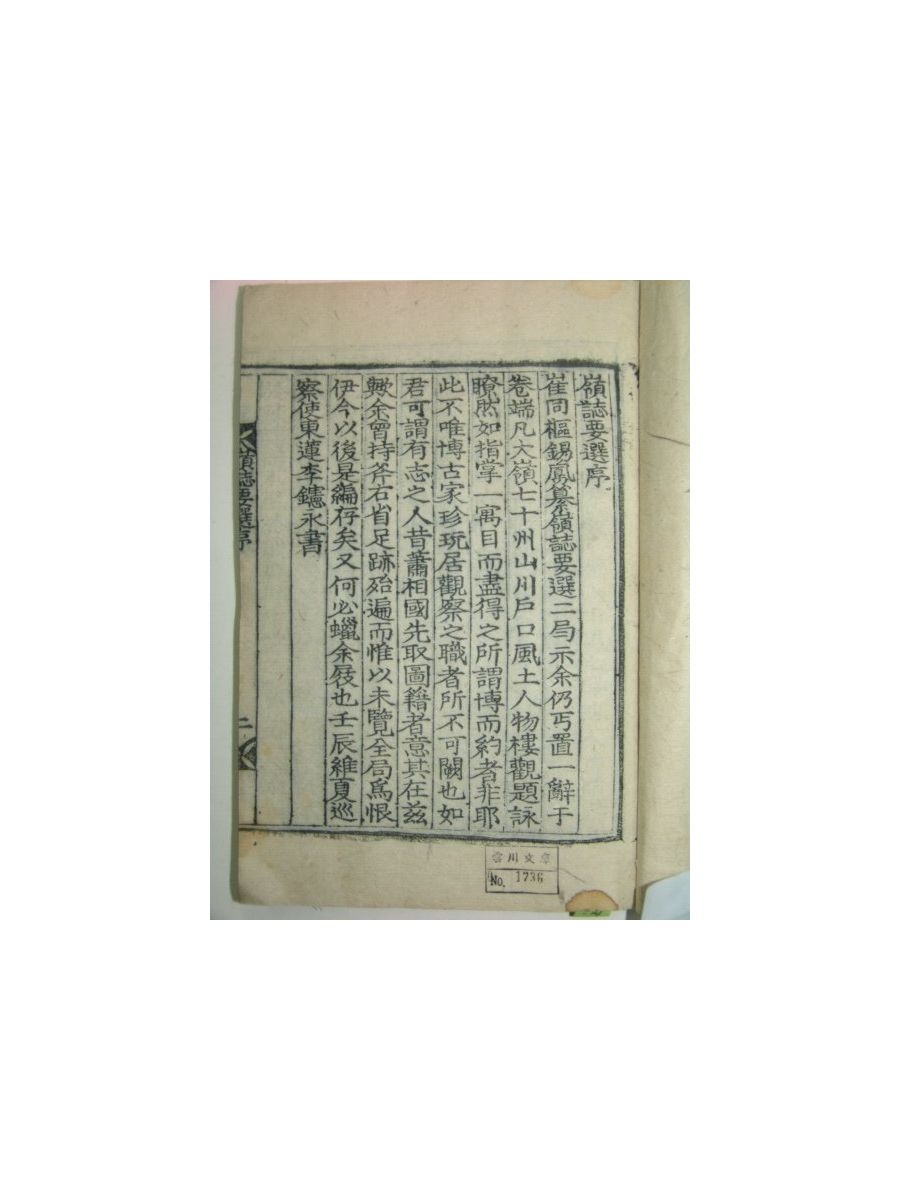 嶺誌要選序
崔同樞錫鳳纂嶺誌要選二局示余仍丐置一辭于
卷端凡大嶺七十州山川戶口風土人物樓觀題詠
瞭然如指掌一寓目而盡得之所謂博而約者非耶
此不唯博古家珍玩居觀察之職者所不可闕也如
君可謂有志之人昔蕭相國先取圖籍者意其在玆
歟余曾持斧右省足跡殆遍而惟以未覽全局爲恨
伊今以後是編存矣又何必蠟余屐也壬辰維夏巡
察使東蓮李𨯶永書
嶺誌要選序
二
雲川文庫
No. 1736